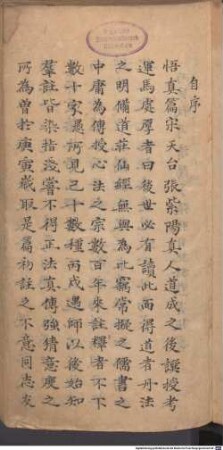 自序
悟真篇宋天台張紫陽真人道成之後譔授考
運馬處厚者曰後世必有讀此而得道者丹法
之明備道莊仙經無與為比窮嘗擬之儒書之
中庸為傳授心法之宗數百年來註釋者不下
數十家遇所見已十數種而戍遇師以後始知
羣註皆染指淺嘗不得正法真傳強猜意度之
所為曾於庚寅歲取是篇初註之不意同志友